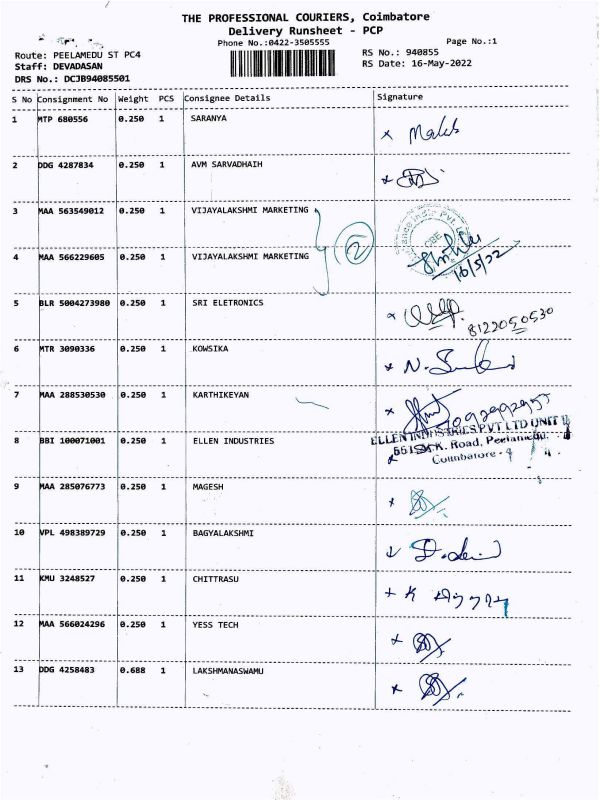 THE PROFESSIONAL COURIERS, Coimbatore
Delivery Runsheet - PCP
Phone No.:0422-3505555
Page No.:1
Route: PEELAMEDU ST PC4
RS No.: 940855
Staff: DEVADASAN
RS Date: 16-May-2022
DRS No.: DCJB94085501
S No Consignment No Weight PCS Consignee Details Signature
1 MTP 680556 0.250 1 SARANYA
2 DDG 4287834 0.250 1 AVM SARVADHAIH
3 MAA 563549012 0.250 1 VIJAYALAKSHMI MARKETING
2
4 MAA 566229605 0.250 1 VIJAYALAKSHMI MARKETING
16/5/22
5 BLR 5004273980 0.250 1 SRI ELETRONICS
8122050530
6 MTR 3090336 0.250 1 KOWSIKA
7 MAA 288530530 0.250 1 KARTHIKEYAN
ELLEN INDUSTRIES PVT LTD UNIT II
8 BBI 100071001 0.250 1 ELLEN INDUSTRIES
Road, Peelamedu,
Coimbatore - 4
9 MAA 285076773 0.250 1 MAGESH
10 VPL 498389729 0.250 1 BAGYALAKSHMI
11 KMU 3248527 0.250 1 CHITTRASU
12 MAA 566024296 0.250 1 YESS TECH
13 DDG 4258483 0.688 1 LAKSHMANASWAMU